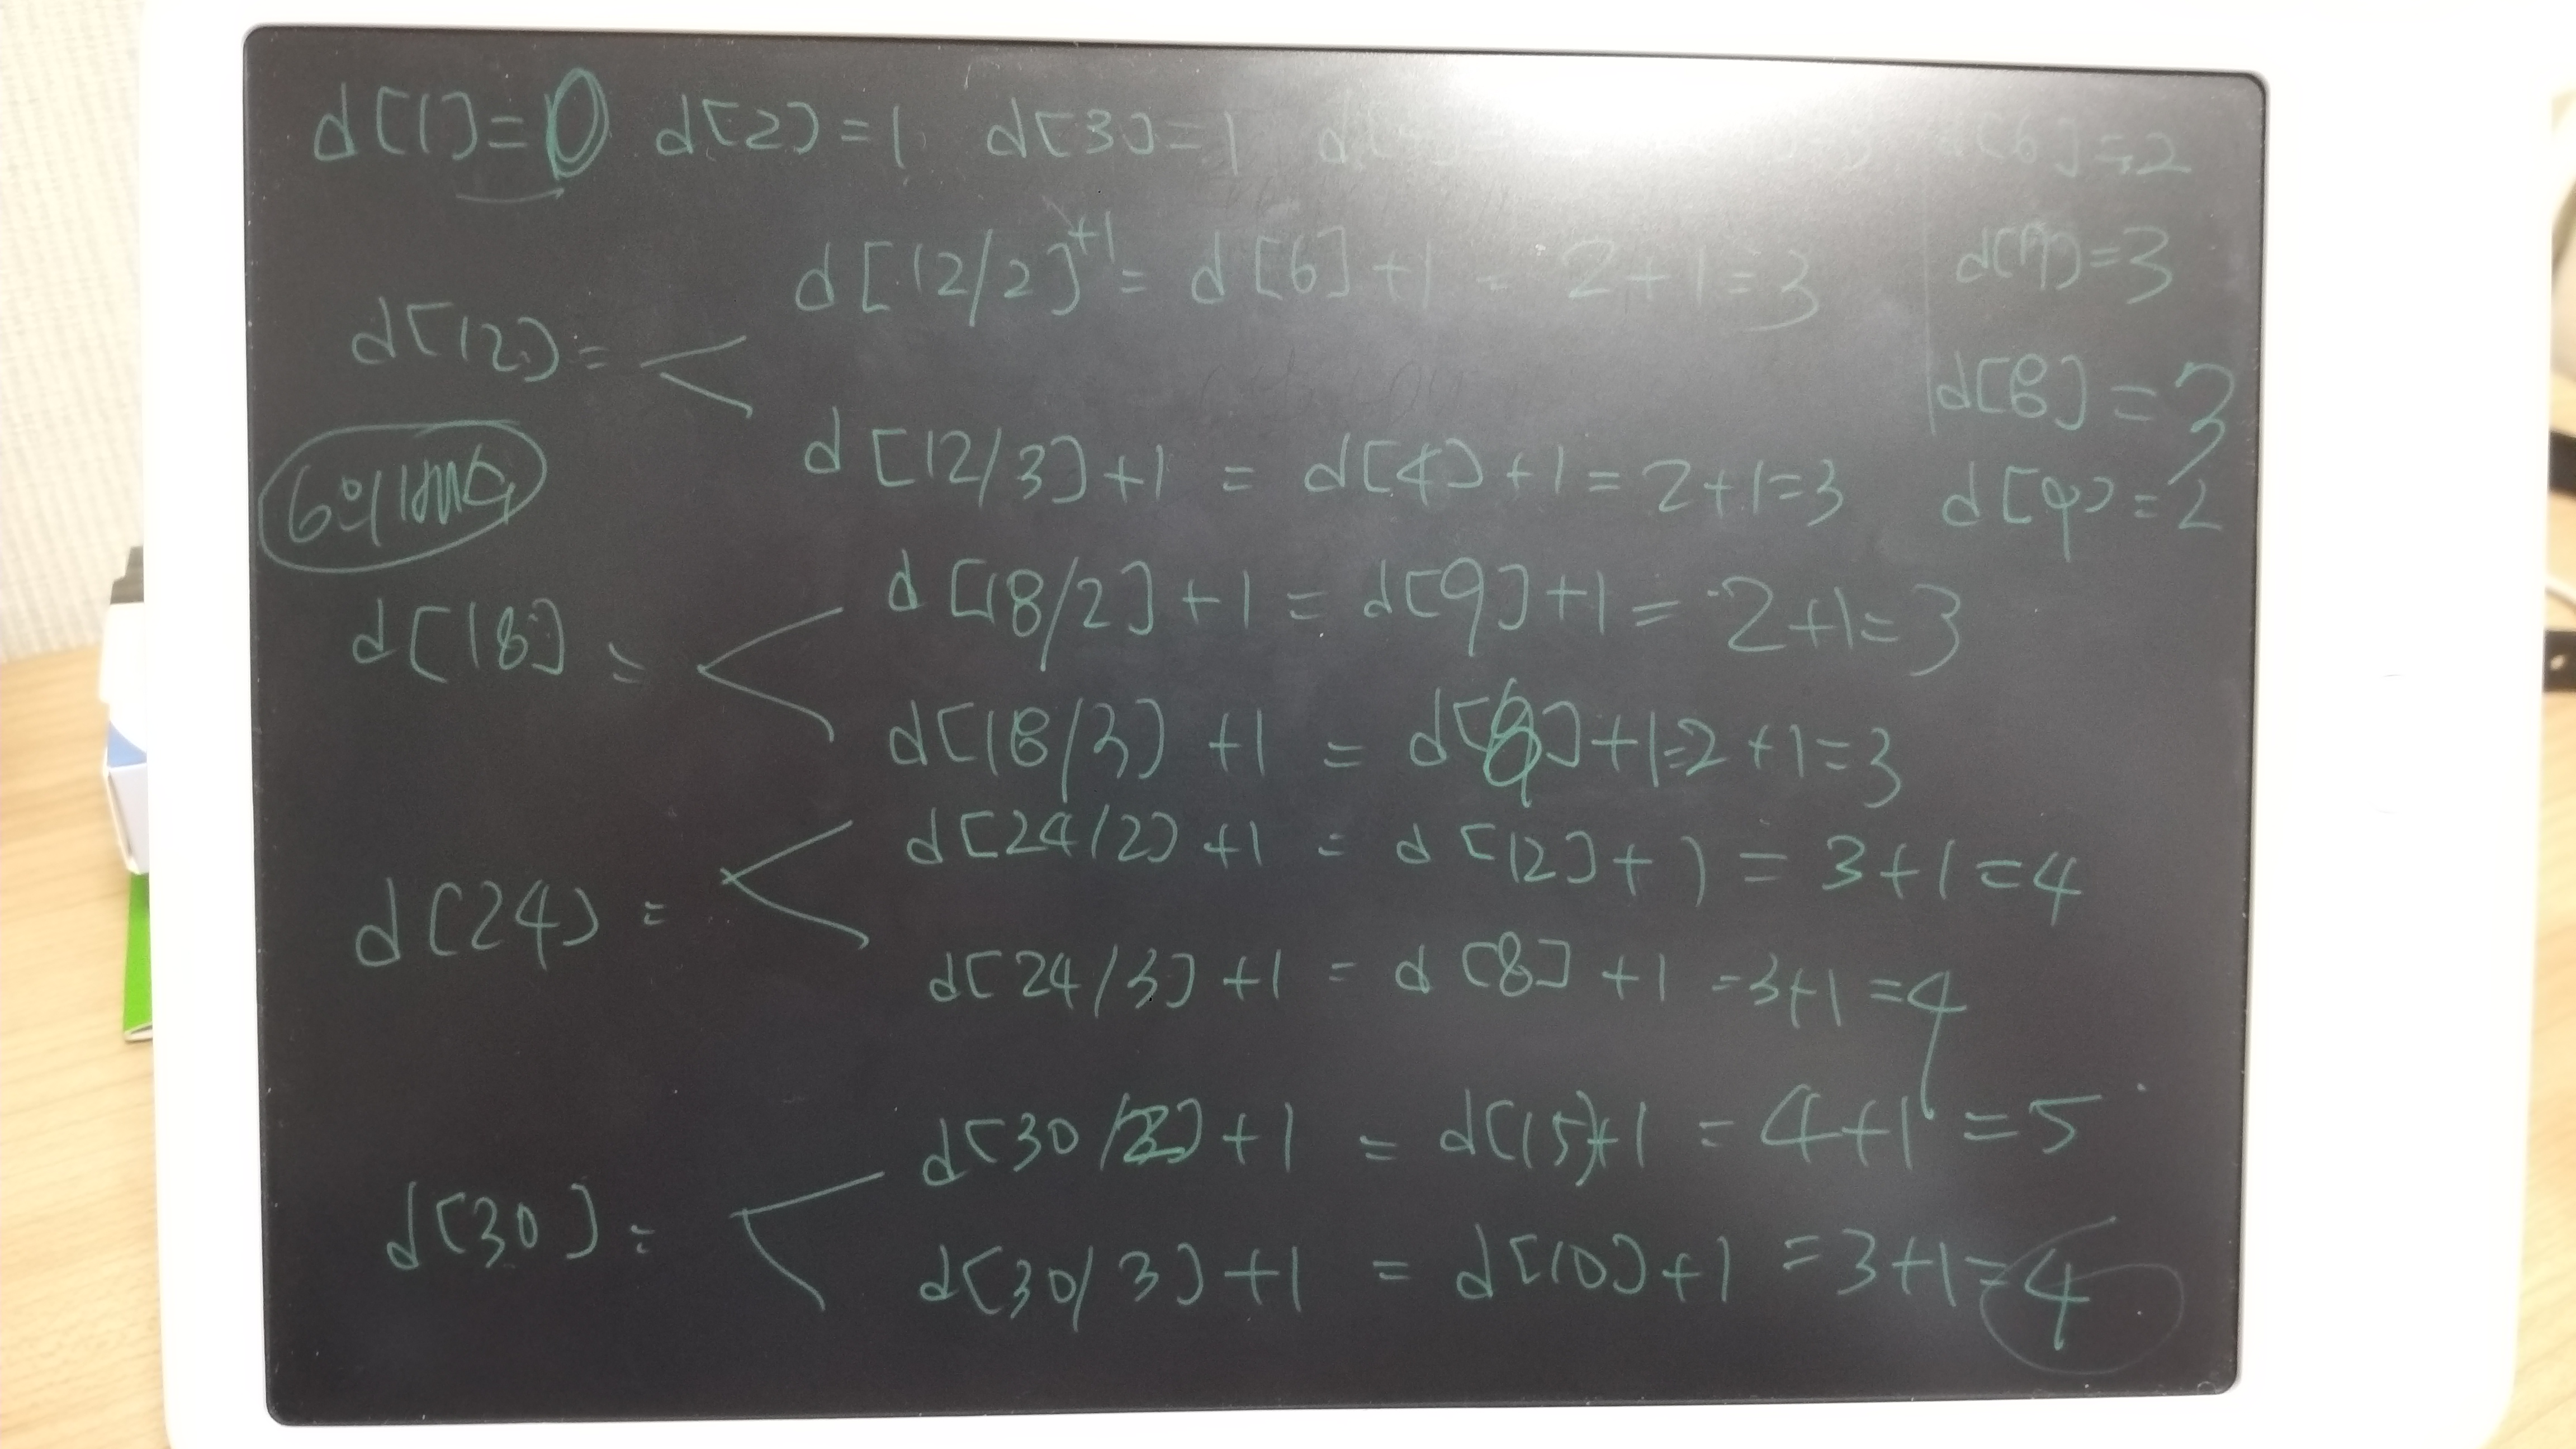 d[1]=0 d[2]=1 d[3]=1 d[6]=2
d[7]=3
d[12/2]+1 = d[6]+1 = 2+1=3
d[12]=
d[8]=3
d[12/3]+1 = d[4]+1=2+1=3
d[9]=2
6의
d[18/2]+1 = d[9]+1 = 2+1=3
d[18] =
d[18/3]+1 = d[6]+1=2+1=3
d[24/2]+1 = d[12]+1 = 3+1=4
d[24] =
d[24/3]+1 = d[8]+1 =3+1=4
d[30/2]+1 = d[15]+1 = 4+1=5
d[30] =
d[30/3]+1 = d[10]+1 =3+1=4